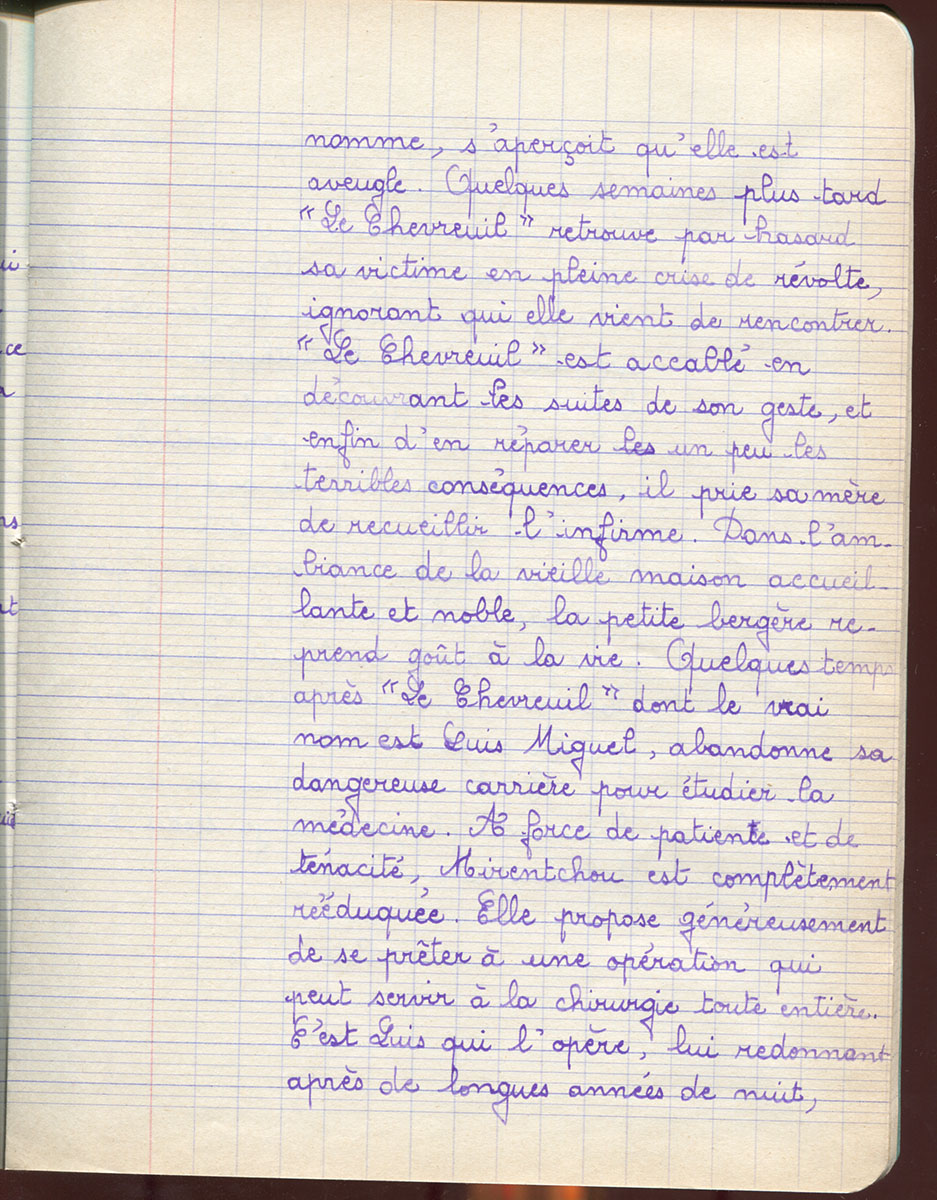 nomme, s'aperçoit qu'elle est
aveugle. Quelques semaines plus tard
"Le Chevreuil" retrouve par hasard
sa victime en pleine crise de révolte,
ignorant qui elle vient de rencontrer.
"Le Chevreuil" est accablé en
découvrant les suites de son geste, et
enfin d'en réparer les un peu les
terribles conséquences, il prie sa mère
de recueillir l'infirme. Dans l'am-
biance de la vieille maison accueil-
lante et noble, la petite bergère re-
prend goût à la vie. Quelques temps
après "Le Chevreuil" dont le vrai
nom est Luis Miguel, abandonne sa
dangereuse carrière pour étudier la
médecine. A force de patiente et de
ténacité, Mirentchou est complètement
rééduquée. Elle propose généreusement
de se prêter à une opération qui
peut servir à la chirurgie toute entière.
C'est Luis qui l'opère, lui redonnant
après de longues années de nuit,